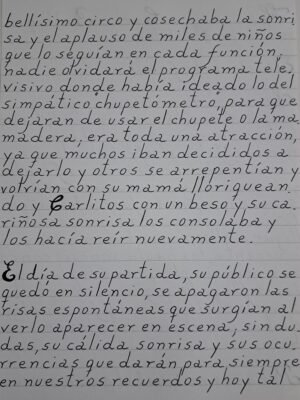 bellísimo circo y cosechaba la sonri
sa y el aplauso de miles de niños
que lo seguían en cada función,
nadie olvidará el programa tele.
visivo donde había ideado lo del
simpático chupetómetro, para que
dejaran de usar el chupete o la ma
madera, era toda una atracción,
ya que muchos iban decididos a
dejarlo y otros se arrepentían y
volvían con su mamá lloriquean.
do y Carlitos con un beso y su ca.
riñosa sonrisa los consolaba y
los hacía reír nuevamente.
El día de su partida, su público se
quedó en silencio, se apagaron las
risas espontáneas que surgían al
verlo aparecer en escena, sin du
das, su cálida sonrisa y sus ocu.
rrencias que darán para siempre
en nuestros recuerdos y hoy tal